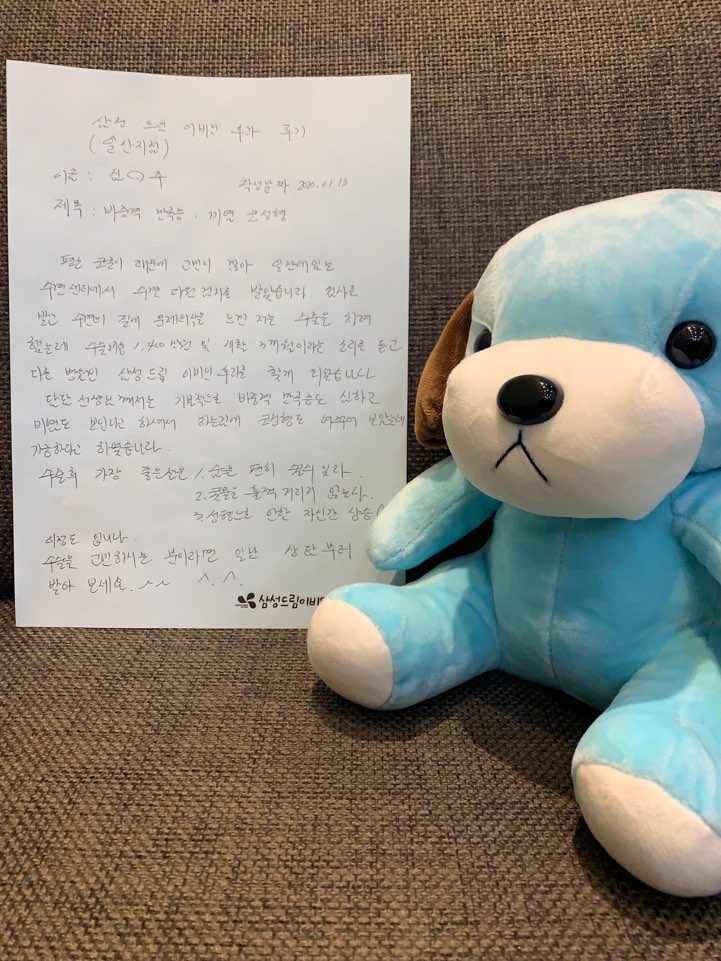 삼성 드림 이비인 후과 후기
(일산지점)
이름 : 신○주 작성날짜 2020. 01 13
제목 : 비중격 만곡증, 비염 코성형
평소 코골이 때문에 고민이 많아 일산에있는
수면센터에서 수면 다원 검사를 받았습니다 검사를
받고 수면의 질에 문제의식을 느낀 저는 수술을 하려
했는데 수술비용 1,400 만원 및 재활 3개월이라는 소리를 듣고
다른 병원인 삼성드림 이비인 후과를 찾게 되었습니다.
선생님께서는 기본적으로 비중격 만곡증도 심하고
비염도 보인다고 하셔서 하는김에 코성형도 여쭈어 보았는데
가능하다고 하셨습니다.
수술후 가장 좋은점은 1. 숨을 편히 쉴수 있다.
2. 콧물을 훌쩍 거리지 않는다.
3. 성형으로 인한 자신감 상승
이정도 입니다.
수술을 고민하시는 분이라면 일단 상담부터
받아 보세요. ^^ ^.^.
삼성드림이비